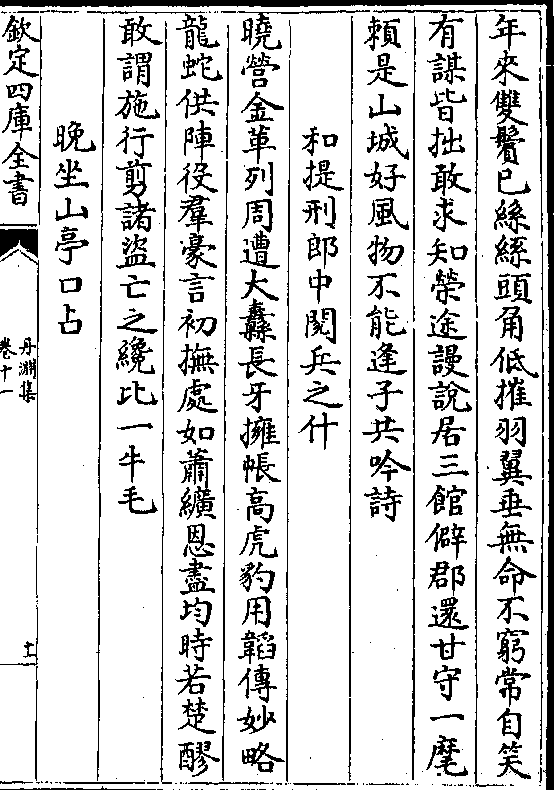 年來雙鬢已絲絲頭角低摧羽翼垂無命不窮常自笑
有謀皆拙敢求知榮途謾說居三館僻郡還甘守一麾
頼是山城好風物不能逢子共吟詩
和提刑郎中閱兵之什
曉營金革列周遭大纛長牙擁帳高虎豹用韜傳妙略
龍蛇供陣役羣豪言初撫處如蕭纊恩盡均時若楚醪
敢謂施行剪諸盜亡之纔比一牛毛
晚坐山亭口占
欽定四庫全書
丹淵集
卷十一
十一